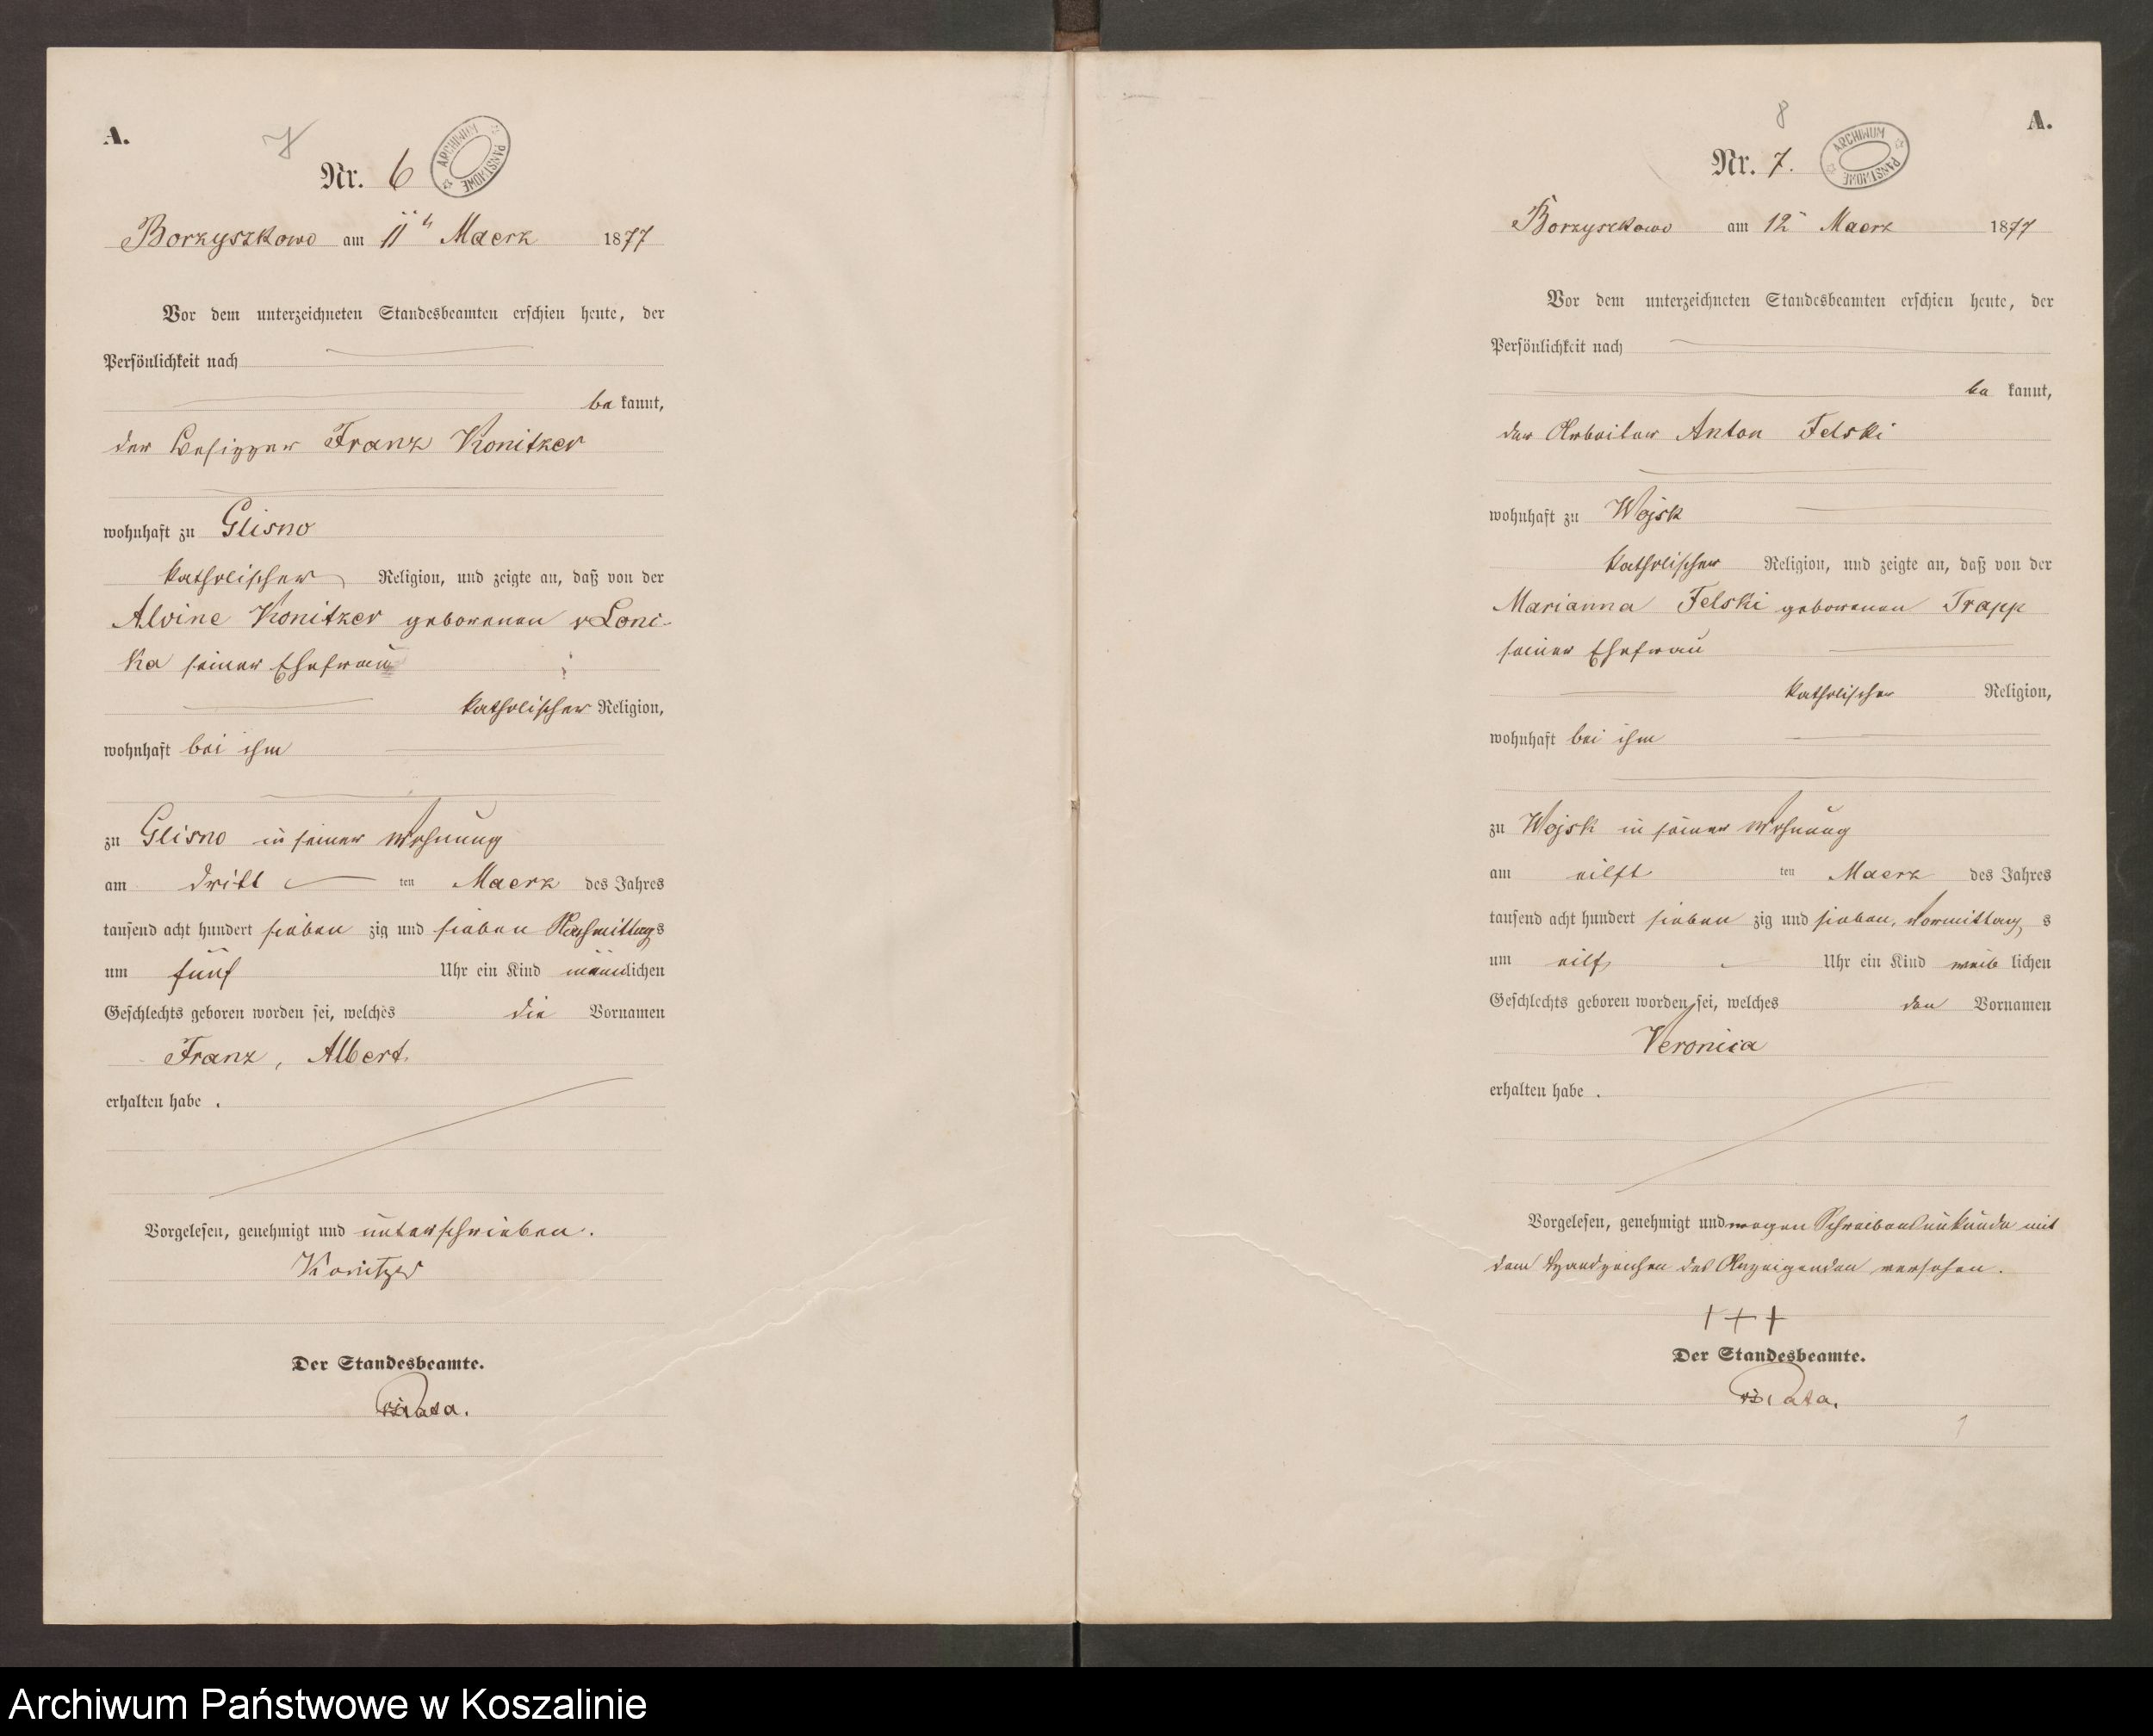 A.
7
Nr. 6
ARCHIWUM PAŃSTWOWE
Borzyszkowo am 11 Maerz 1877
Vor dem unterzeichneten Standesbeamten erschien heute, der
Persönlichkeit nach
be kannt,
der Besitzer Franz Konitzer
wohnhaft zu Glisno
katholischer Religion, und zeigte an, daß von der
Alvine Konitzer geborenen v Loni-
ka seiner Ehefrau
katholischer Religion,
wohnhaft bei ihm
zu Glisno in seiner Wohnung
am dritt ten Maerz des Jahres
tausend acht hundert sieben zig und sieben Nachmittags
um fünf Uhr ein Kind männlichen
Geschlechts geboren worden sei, welches die Vornamen
Franz, Albert.
erhalten habe .
Vorgelesen, genehmigt und unterschrieben.
Konitzer
Der Standesbeamte.
8
A.
Nr. 7.
ARCHIWUM PAŃSTWOWE
Borzyszkowo am 12 Maerz 1877
Vor dem unterzeichneten Standesbeamten erschien heute, der
Persönlichkeit nach
be kannt,
der Arbeiter Anton Felski
wohnhaft zu Wojsk
katholischer Religion, und zeigte an, daß von der
Marianna Felski geborenen Trapp
seiner Ehefrau
katholischer Religion,
wohnhaft bei ihm
zu Wojsk in seiner Wohnung
am eilft ten Maerz des Jahres
tausend acht hundert sieben zig und sieben, Vormittag s
um eilf Uhr ein Kind weib lichen
Geschlechts geboren worden sei, welches den Vornamen
Veronica
erhalten habe .
Vorgelesen, genehmigt und wegen Schreibensunkunde mit
dem Handzeichen des Anzeigenden versehen.
+++
Der Standesbeamte.
Archiwum Państwowe w Koszalinie